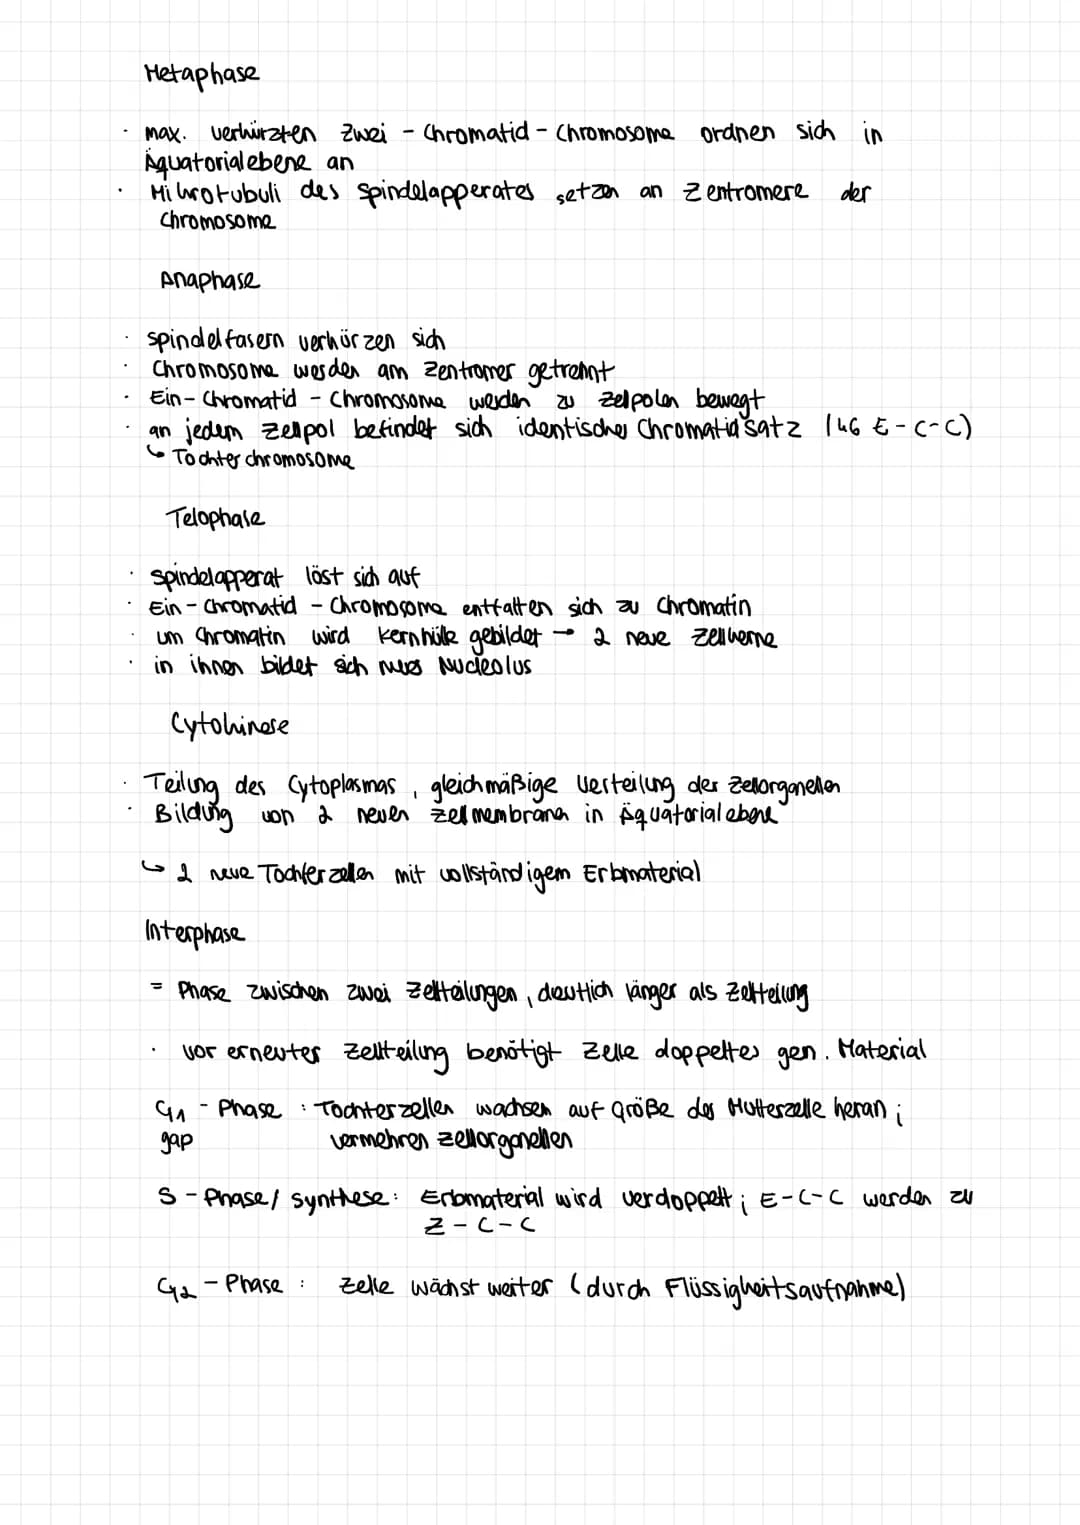 Metaphase
· max. verkürzten Zwei - Chromatid - Chromosome ordnen sich in
Äquatorialebene an
· Mikrotubuli des Spindelapperates setzen an Zentromere der
Chromosome
Anaphase
· Spindelfasern verkürzen sich
· Chromosome werden am Zentromer getrennt
· Ein - Chromatid - Chromosome werden zu Zellpolen bewegt
· an jedem Zellpol befindet sich identischer Chromatidsatz (46 E-C-C)
↳ Tochterchromosome
Telophase
· Spindelapperat löst sich auf
· Ein - Chromatid - Chromosome entfalten sich zu Chromatin
· um Chromatin wird Kernhülle gebildet → 2 neue Zellkerne
· in ihnen bildet sich neues Nucleolus
Cytokinese
· Teilung des Cytoplasmas, gleichmäßige Verteilung der Zellorganellen
· Bildung von 2 neuen Zellmembranen in Äquatorialebene
↳ 2 neue Tochterzellen mit vollständigem Erbmaterial
Interphase
= Phase zwischen zwei Zellteilungen, deutlich länger als Zellteilung
· vor erneuter Zellteilung benötigt Zelle doppeltes gen. Material
G1 - Phase : Tochterzellen wachsen auf Größe der Mutterzelle heran ;
gap vermehren Zellorganellen
S - Phase / Synthese: Erbmaterial wird verdoppelt ; E-C-C werden zu
Z - C - C
G2 - Phase : Zelle wächst weiter (durch Flüssigkeitsaufnahme)